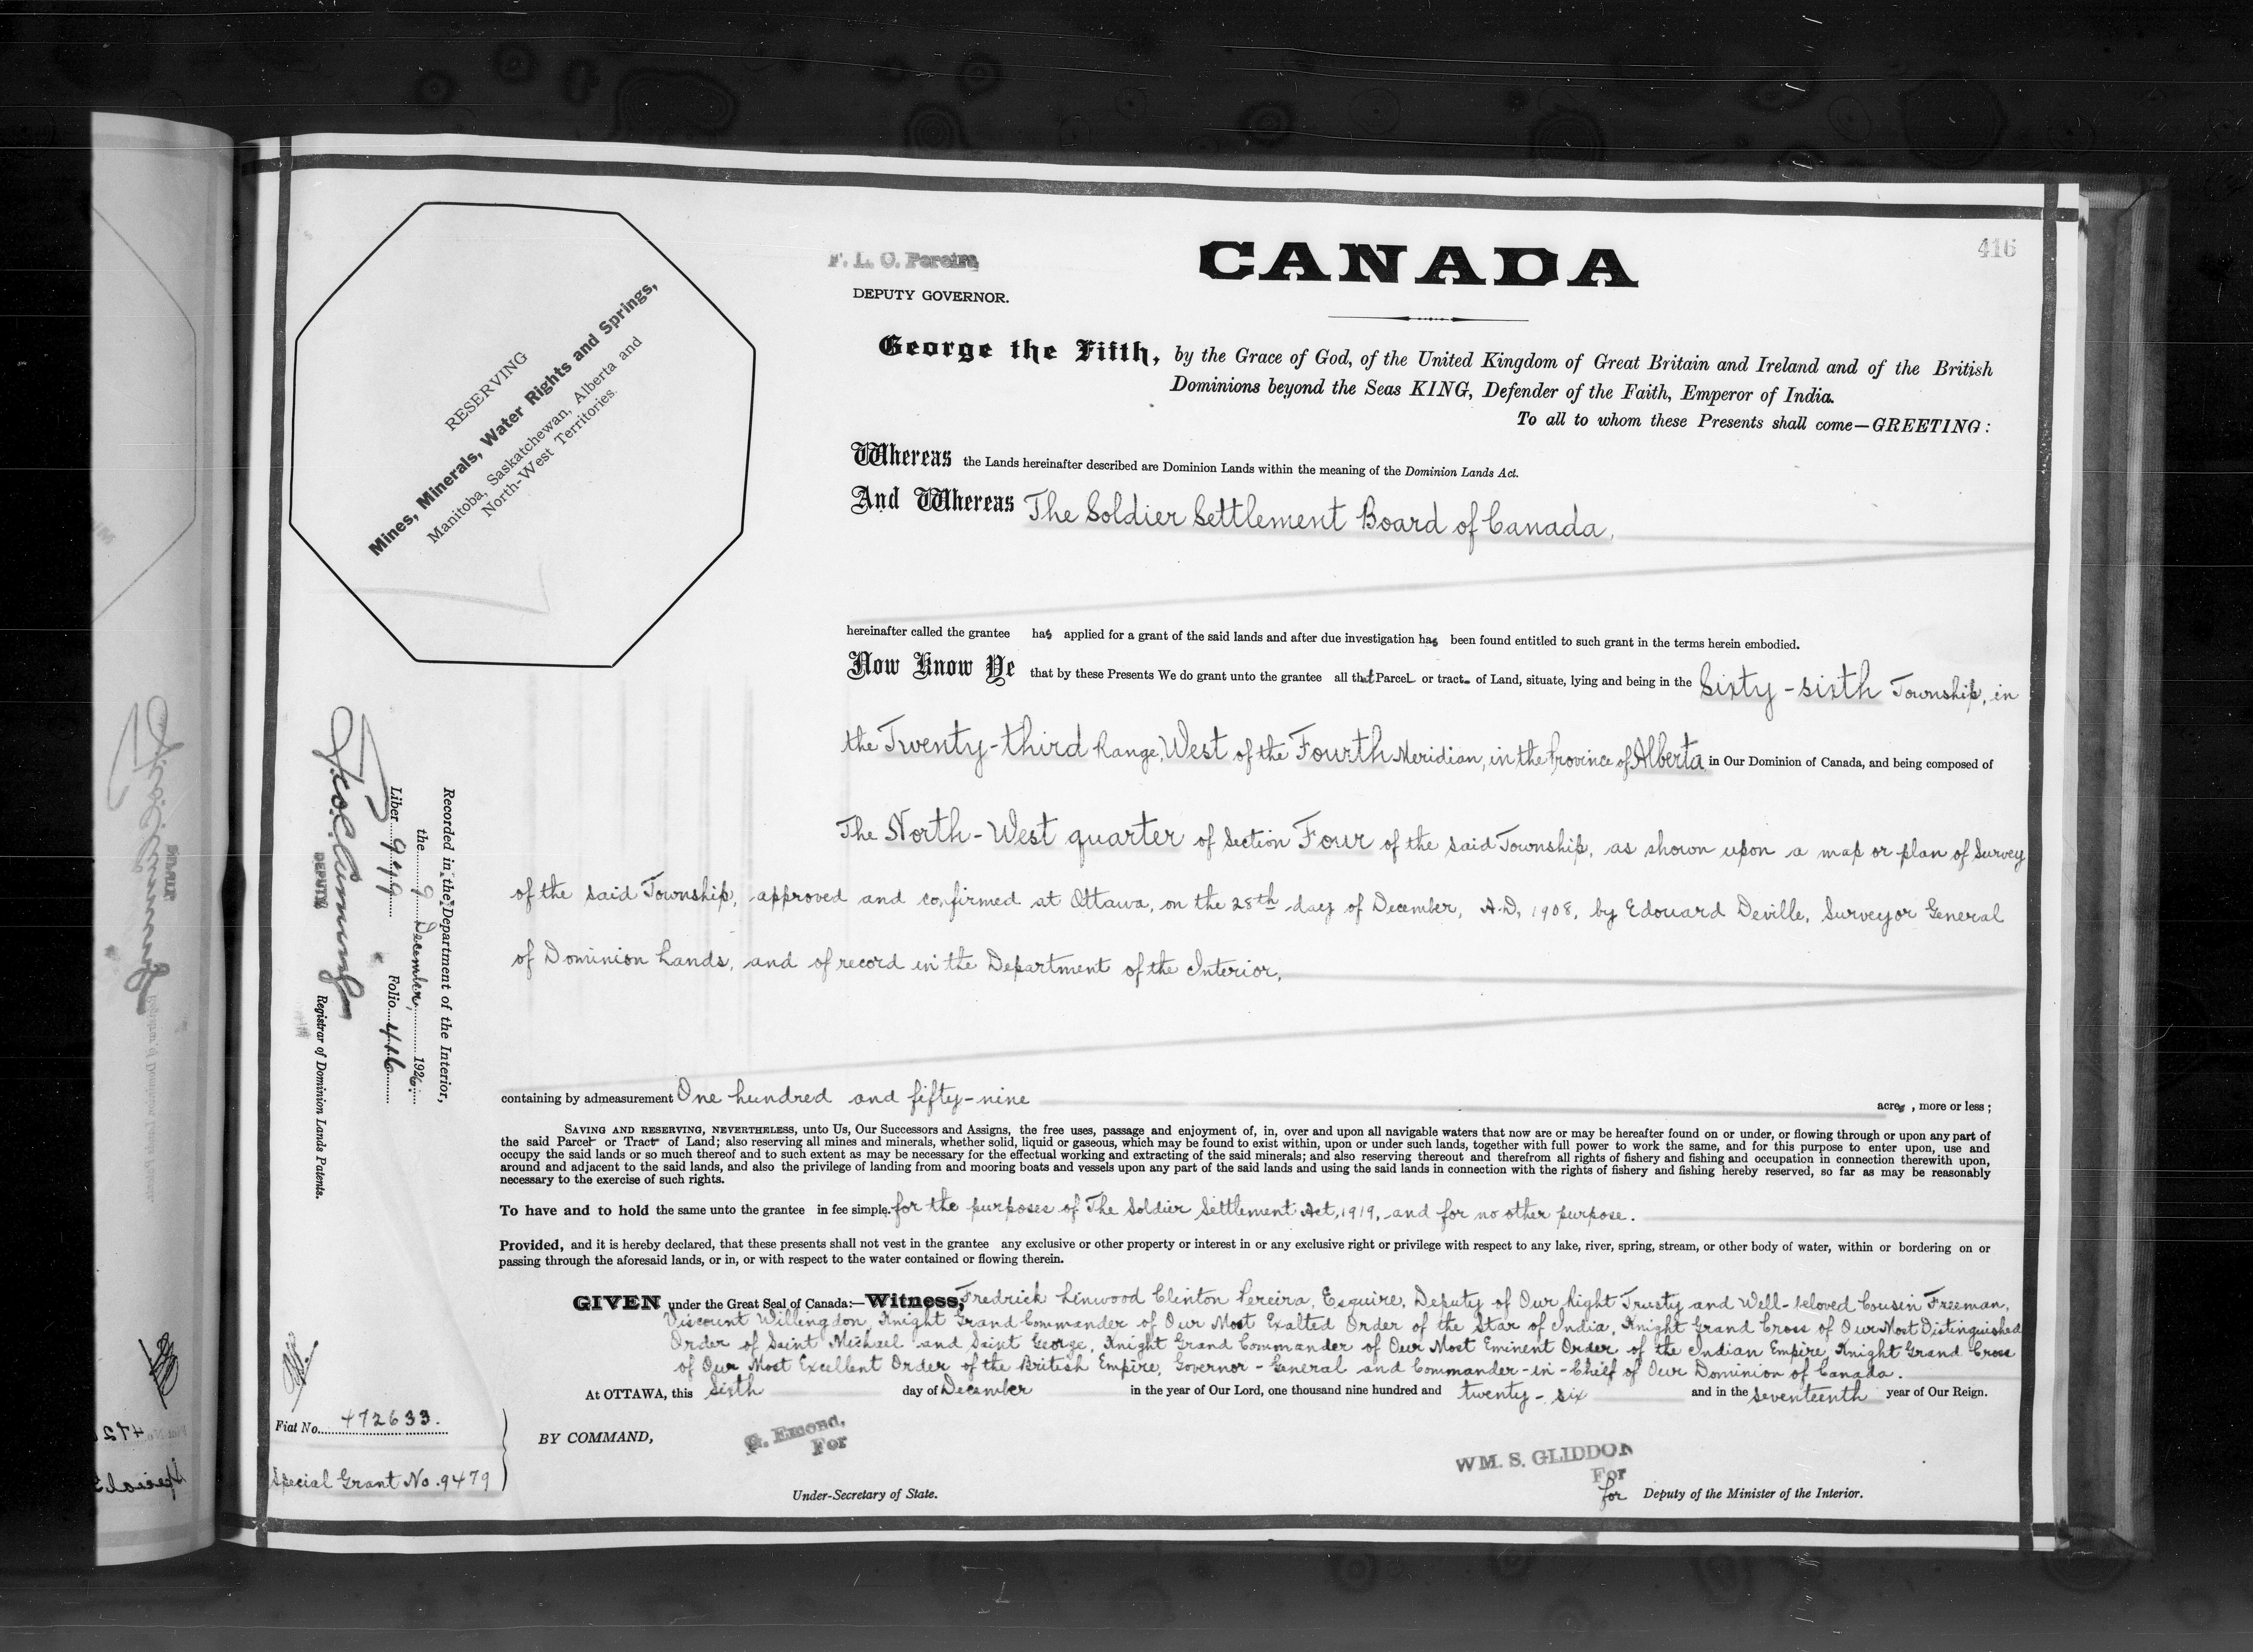 416
F. L. C. Pereira,
DEPUTY GOVERNOR.
CANADA
RESERVING
Mines, Minerals, Water Rights and Springs,
Manitoba, Saskatchewan, Alberta and
North-West Territories.
George the Fifth, by the Grace of God, of the United Kingdom of Great Britain and Ireland and of the British
Dominions beyond the Seas KING, Defender of the Faith, Emperor of India.
To all to whom these Presents shall come—GREETING:
Whereas the Lands hereinafter described are Dominion Lands within the meaning of the Dominion Lands Act.
And Whereas The Soldier Settlement Board of Canada,
hereinafter called the grantee has applied for a grant of the said lands and after due investigation has been found entitled to such grant in the terms herein embodied.
Now Know Ye that by these Presents We do grant unto the grantee all that Parcel or tract of Land, situate, lying and being in the Sixty-sixth Township, in
the Twenty-third Range, West of the Fourth Meridian, in the Province of Alberta in Our Dominion of Canada, and being composed of
The North-West quarter of Section Four of the said Township, as shown upon a map or plan of Survey
of the said Township, approved and confirmed at Ottawa, on the 28th day of December, A.D. 1908, by Edouard Deville, Surveyor General
of Dominion Lands, and of record in the Department of the Interior,
containing by admeasurement One hundred and fifty-nine acres, more or less;
SAVING AND RESERVING, NEVERTHELESS, unto Us, Our Successors and Assigns, the free uses, passage and enjoyment of, in, over and upon all navigable waters that now are or may be hereafter found on or under, or flowing through or upon any part of
the said Parcel or Tract of Land; also reserving all mines and minerals, whether solid, liquid or gaseous, which may be found to exist within, upon or under such lands, together with full power to work the same, and for this purpose to enter upon, use and
occupy the said lands or so much thereof and to such extent as may be necessary for the effectual working and extracting of the said minerals; and also reserving thereout and therefrom all rights of fishery and fishing and occupation in connection therewith upon,
around and adjacent to the said lands, and also the privilege of landing from and mooring boats and vessels upon any part of the said lands and using the said lands in connection with the rights of fishery and fishing hereby reserved, so far as may be reasonably
necessary to the exercise of such rights.
To have and to hold the same unto the grantee in fee simple. for the purposes of The Soldier Settlement Act, 1919, and for no other purpose.
Provided, and it is hereby declared, that these presents shall not vest in the grantee any exclusive or other property or interest in or any exclusive right or privilege with respect to any lake, river, spring, stream, or other body of water, within or bordering on or
passing through the aforesaid lands, or in, or with respect to the water contained or flowing therein.
GIVEN under the Great Seal of Canada:—Witness, Fredrick Linwood Clinton Pereira, Esquire, Deputy of Our Right Trusty and Well-beloved Cousin Freeman,
Viscount Willingdon, Knight Grand Commander of Our Most Exalted Order of the Star of India, Knight Grand Cross of Our Most Distinguished
Order of Saint Michael and Saint George, Knight Grand Commander of Our Most Eminent Order of the Indian Empire, Knight Grand Cross
of Our Most Excellent Order of the British Empire, Governor-General and Commander-in-Chief of Our Dominion of Canada.
At OTTAWA, this Sixth day of December in the year of Our Lord, one thousand nine hundred and twenty-six and in the Seventeenth year of Our Reign.
BY COMMAND,
G. Emond,
For
Under-Secretary of State.
WM. S. GLIDDON
For
for Deputy of the Minister of the Interior.
Recorded in the Department of the Interior,
the 9 December, 1926.
Liber 949 Folio 416
DEPUTY Registrar of Dominion Lands Patents.
Fiat No. 472633.
Special Grant No. 9479